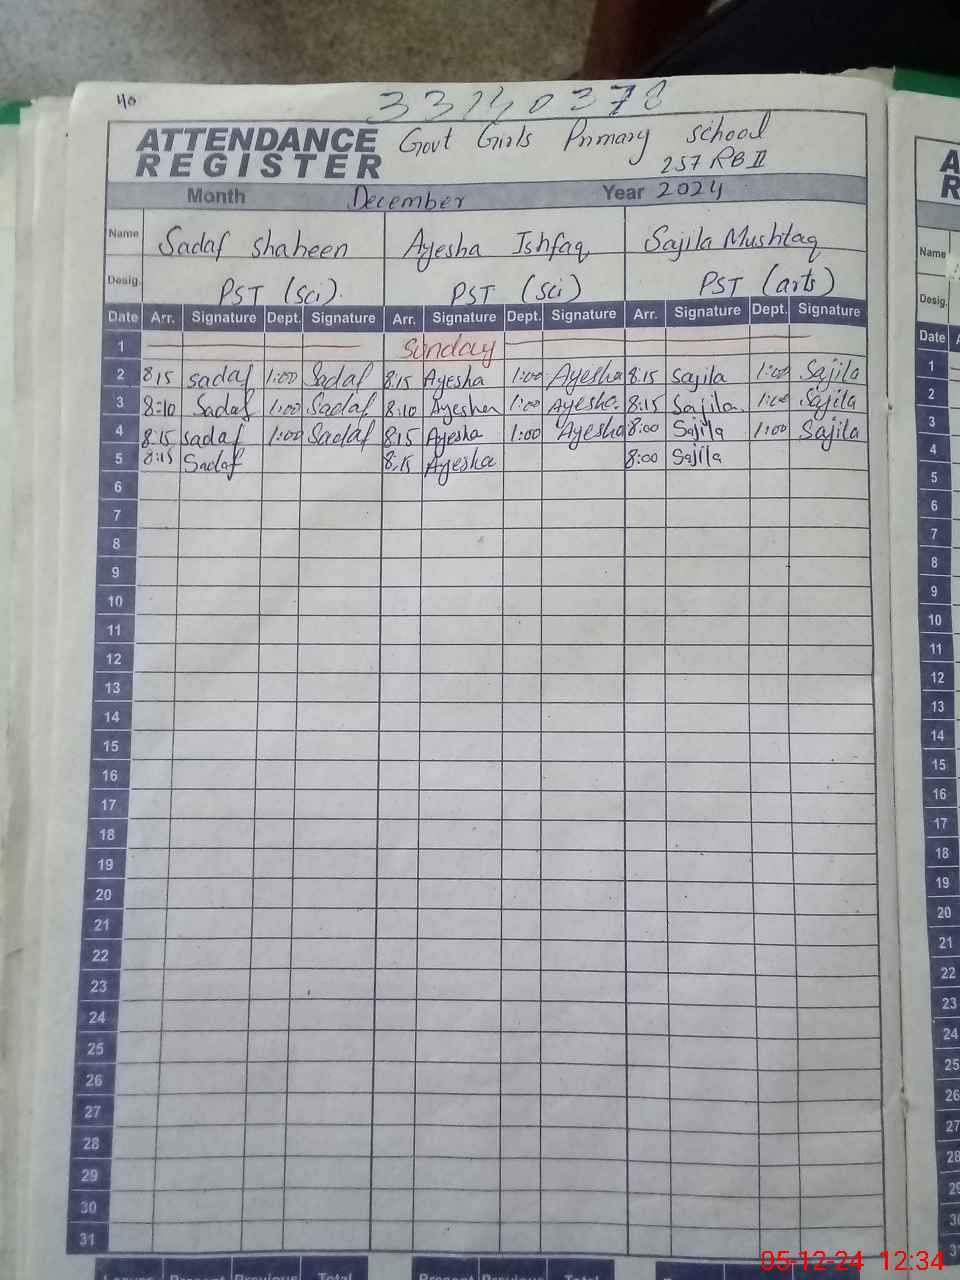 40
33240378
ATTENDANCE REGISTER
Govt Girls Primary school
257 RB II
Month December Year 2024
Name Sadaf shaheen Ayesha Ishfaq Sajila Mushtaq
Desig. PST (sci). PST (sci) PST (arts)
Date Arr. Signature Dept. Signature Arr. Signature Dept. Signature Arr. Signature Dept. Signature
1 Sunday
2 8:15 sadaf 1:00 Sadaf 8:15 Ayesha 1:00 Ayesha 8:15 Sajila 1:00 Sajila
3 8:10 Sadaf 1:00 Sadaf 8:10 Ayesha 1:00 Ayesha. 8:15 Sajila. 1:00 Sajila
4 8:15 sadaf 1:00 Sadaf 8:15 Ayesha 1:00 Ayesha 8:00 Sajila 1:00 Sajila
5 8:15 Sadaf 8:15 Ayesha 8:00 Sajila
6
7
8
9
10
11
12
13
14
15
16
17
18
19
20
21
22
23
24
25
26
27
28
29
30
31
Present Previous Total Present Previous Total
Name
Desig.
Date
1
2
3
4
5
6
7
8
9
10
11
12
13
14
15
16
17
18
19
20
21
22
23
24
25
26
27
28
29
30
05-12-24 12:34